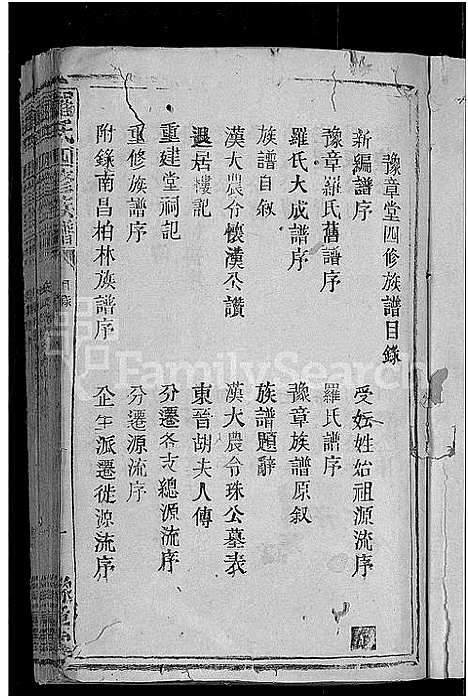 豫章堂四修族譜目錄
新編譜序
受妘姓始祖源流序
豫章羅氏舊譜序
羅氏譜序
羅氏大成譜序
豫章族譜原叙
族譜自叙
族譜題辭
漢大農令懷漢公讚
漢大農令珠公墓表
退居樓記
東晉胡夫人傳
重建堂祠記
分遷各支總源流序
重修族譜序
分遷源流序
附錄南昌柏林族譜序
企生派遷徙源流序
羅氏四修族譜
目錄
一
豫章堂
FamilySearch